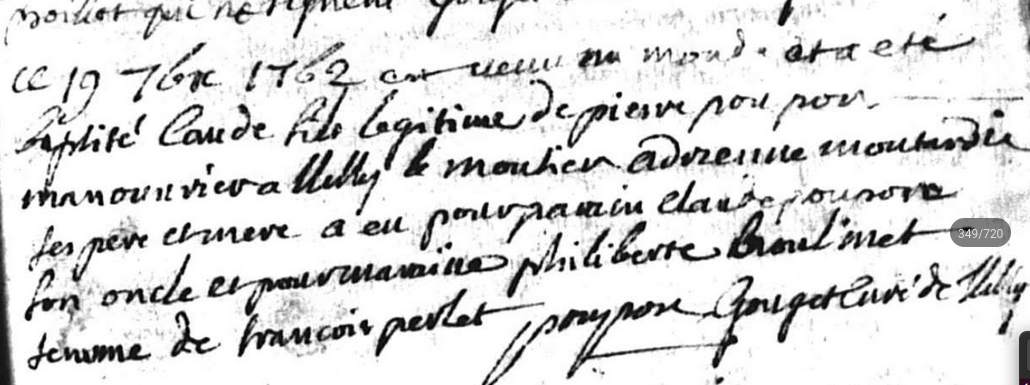 ce 19 7bre 1762 est venu au monde et a eté
baptisé Claude fils legitime de pierre poupon
manouvrier a Milly le moutier adrienne moutardie
ses pere et mere a eu pour parain claude poupon
son oncle et pour maraine philiberte
femme de francois perlet poupon Gouget Curé de Milly
349/720